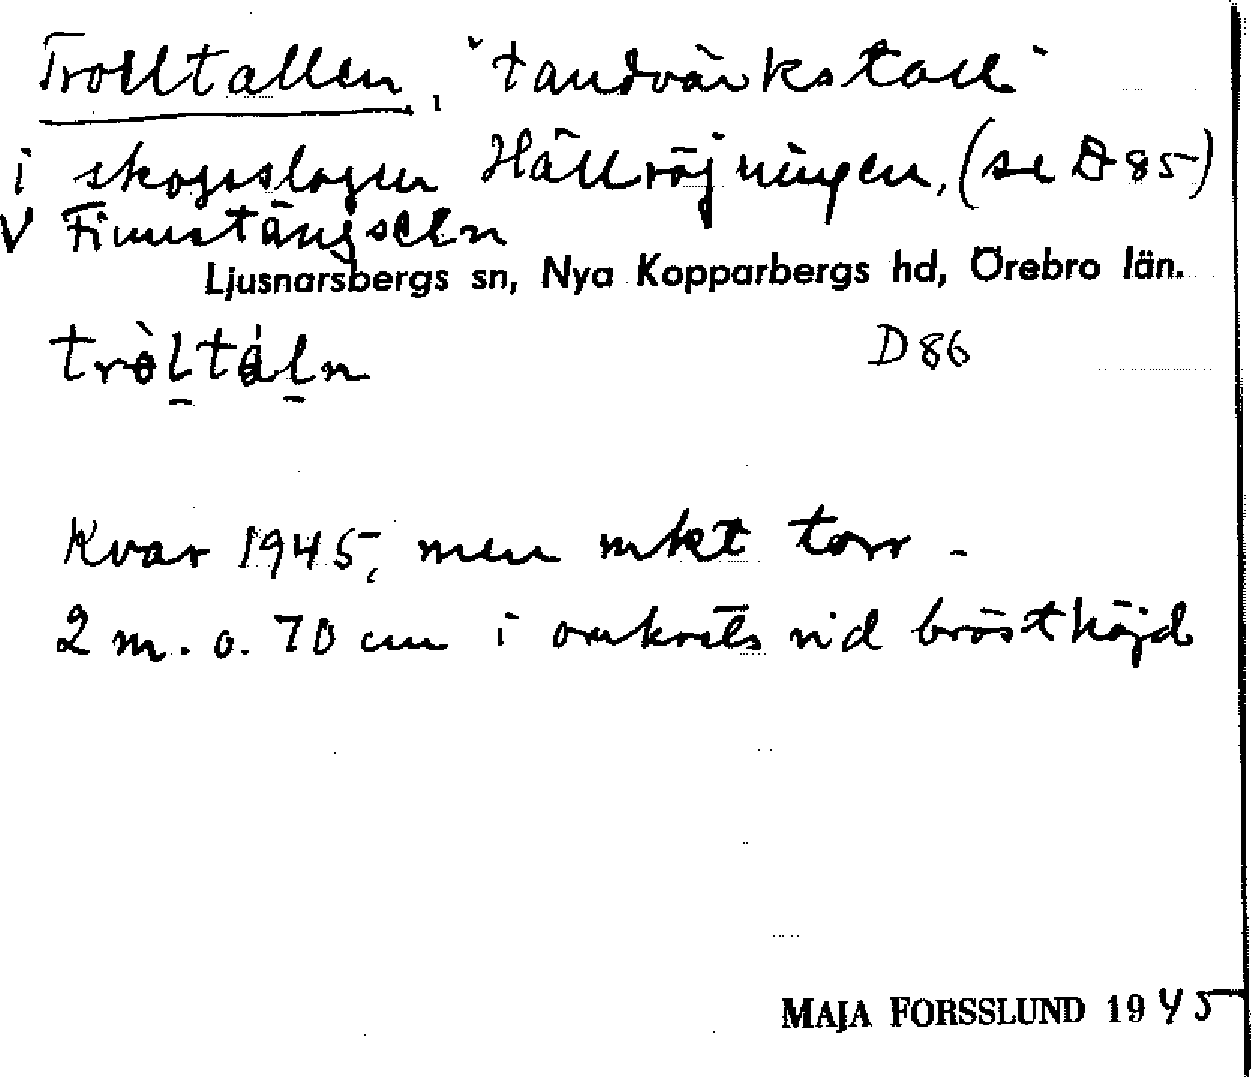 Trolltallen, "tandvärkstall"
i skogsslagen Hällröjningen, (se D 85)
V Finnstängseln
Ljusnarsbergs sn, Nya Kopparbergs hd, Örebro län.
tròltáln D 86
Kvar 1945, men mkt torr -
2 m. o. 70 cm i omkrets vid brösthöjd
MAJA FORSSLUND 1945